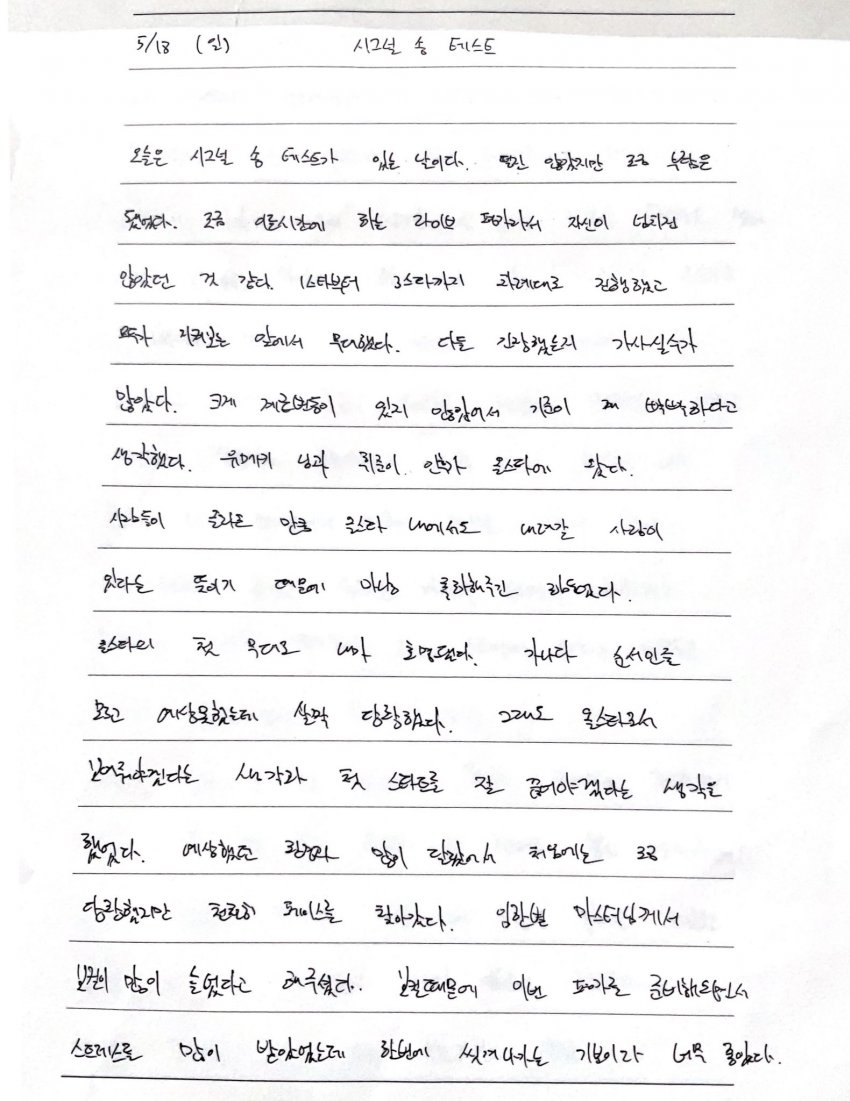 5/18 (일) 시그널 송 테스트
오늘은 시그널 송 테스트가 있는 날이다. 떨진 않았지만 조금 부담은
됐었다. 조금 이른시간에 하는 라이브 평가라서 자신이 넘치진
않았던 것 같다. 1스타부터 3스타까지 차례대로 진행했고
모두가 지켜보는 앞에서 무대했다. 다들 긴장했는지 가사실수가
많았다. 크게 계급변동이 있지 않았어서 기준이 꽤 빡빡하다고
생각했다. 유메키 님과 쥔이 올스타에 왔다.
사람들이 올라온 만큼 올스타 내에서도 내려갈 사람이
있다는 뜻이기 때문에 마냥 축하해주긴 힘들었다.
올스타의 첫 무대로 내가 호명됐다. 가나다 순서인줄
모르고 예상못했는데 살짝 당황했다. 그래도 올스타로서
보여줘야겠다는 생각과 첫 스타트를 잘 끊어야겠다는 생각은
했었다. 예상했던 환경과 많이 달랐어서 처음에는 조금
당황했지만 천천히 페이스를 찾아갔다. 임한별 마스터님께서
보컬이 많이 늘었다고 해주셨다. 보컬때문에 이번 평가를 준비해오면서
스트레스를 많이 받았었는데 한번에 씻겨나가는 기분이라 너무 좋았다.